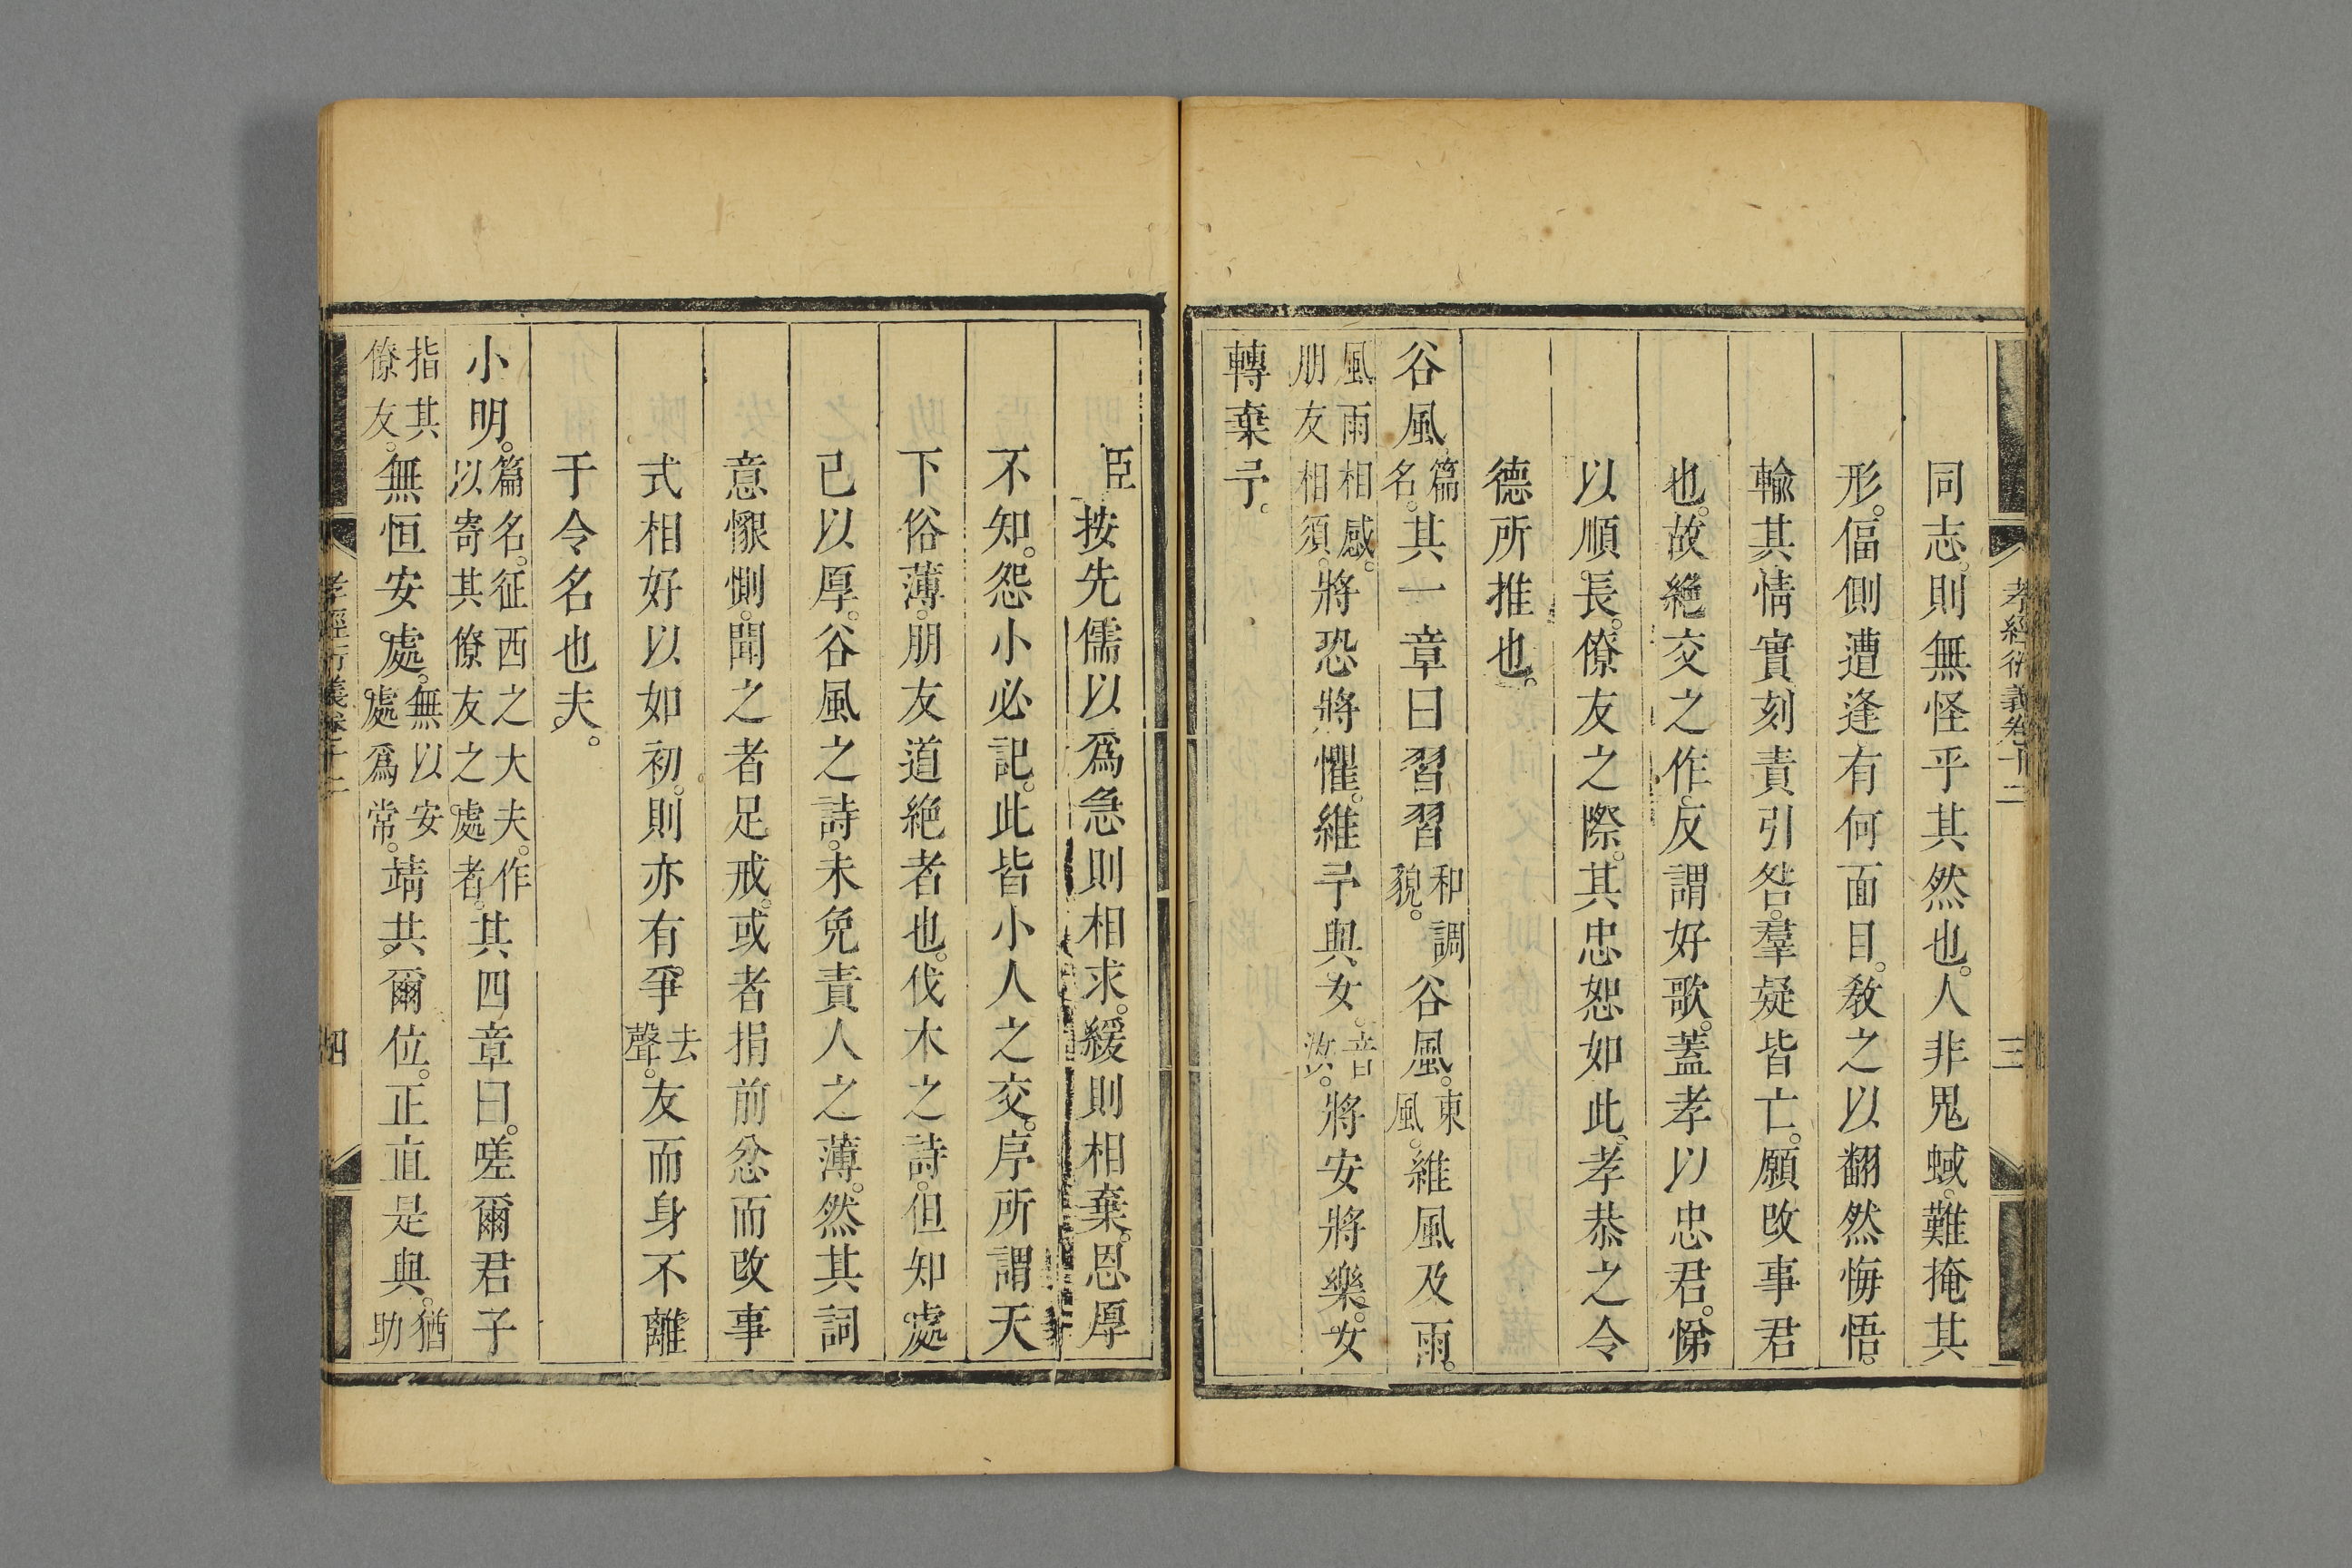 孝經衍義卷十二 三
同志。則無怪乎其然也。人非鬼蜮。難掩其
形。偪側遭逢。有何面目。教之以翻然悔悟。
輸其情實。刻責引咎。羣疑皆亡。願改事君
也。故絶交之作。反謂好歌。蓋孝以忠君。悌
以順長。僚友之際。其忠恕如此。孝恭之令
德所推也。
谷風。篇名。其一章曰習習和調貌。谷風。東風。維風及雨。
風雨相感。朋友相須。將恐將懼。維予與女。音汝。將安將樂。女
轉棄予。
臣按先儒以爲急則相求。緩則相棄。恩厚
不知。怨小必記。此皆小人之交。序所謂天
下俗薄。朋友道絶者也。伐木之詩。但知處
已以厚。谷風之詩。未免責人之薄。然其詞
意懇惻。聞之者足戒。或者捐前忿而改事
式相好以如初。則亦有爭去聲。友而身不離
于令名也夫。
小明。篇名。征西之大夫。作以寄其僚友之處者。其四章曰。嗟爾君子
指其僚友。無恒安處。無以安處爲常。靖共爾位。正直是與。猶助
孝經衍義卷十二 四